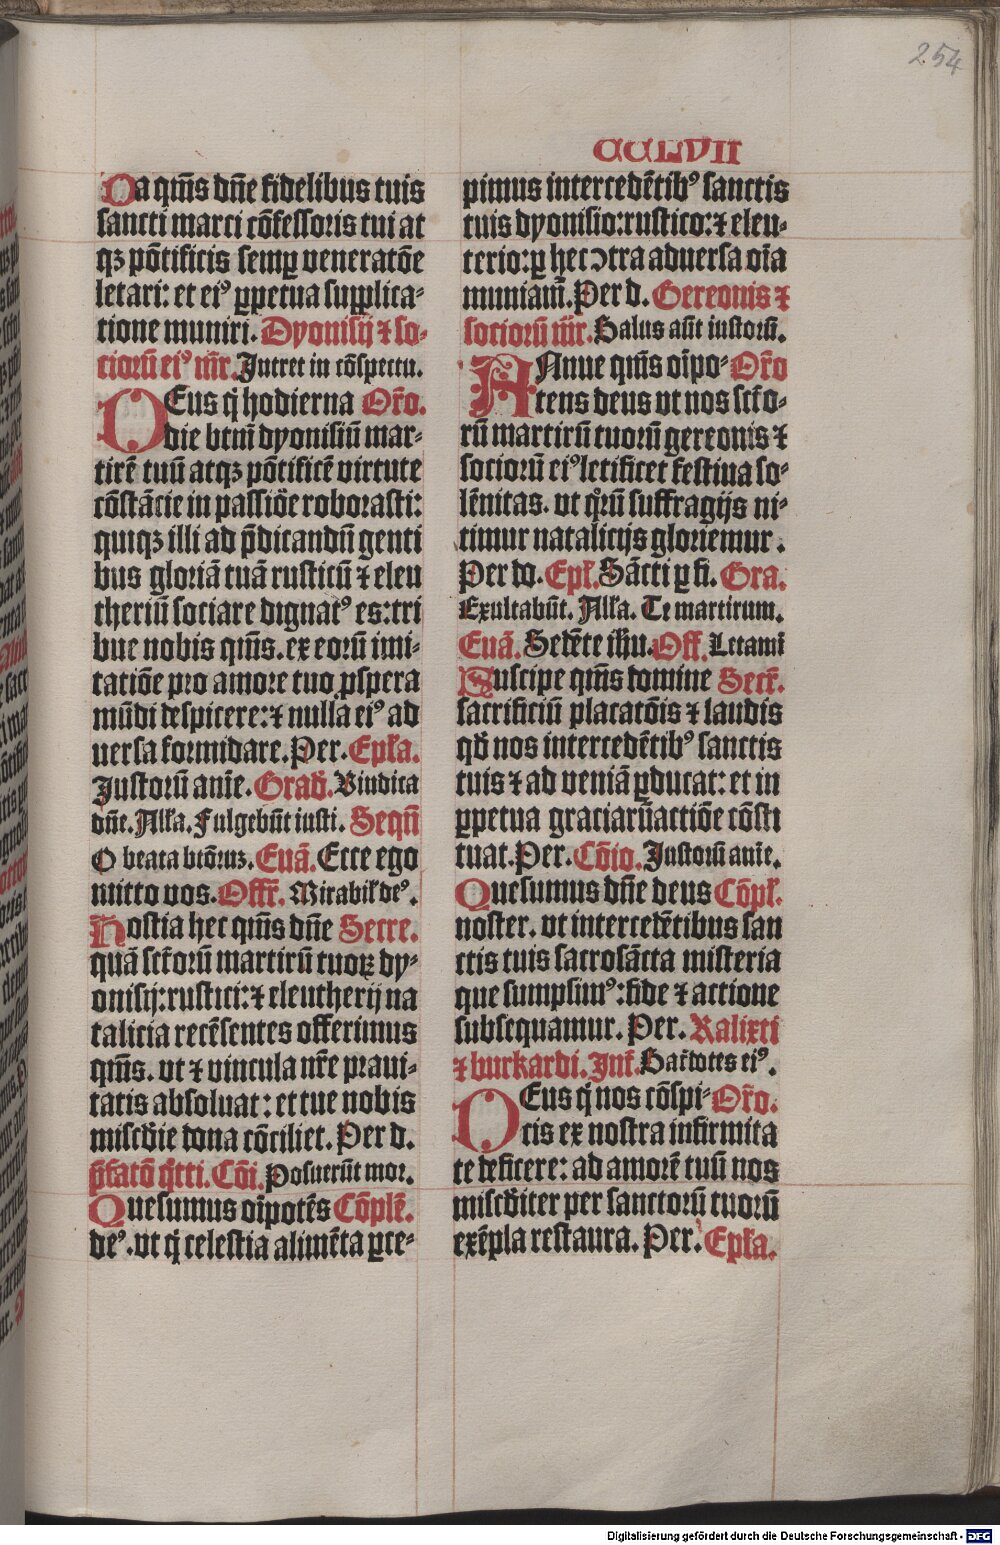 254
CCLVII
Da q̄ms dn̄e fidelibus tuis
sancti marci cōfessoris tui at
qꝫ pōtificis semꝑ veneratōe
letari: et eiꝰ ꝑpetua supplica⸗
tione muniri. Dyonisij ⁊ so⸗
ciorū eiꝰ mr̄. Intret in cōspectu.
DEus q̄ hodierna Or̄o.
die btm̄ dyonisiū mar⸗
tirē tuū atqꝫ pōtificē virtute
cōstācie in passiōe roborasti:
quiqꝫ illi ad p̄dicandū genti
bus gloriā tuā rusticū ⁊ eleu
theriū sociare dignatꝰ es: tri
bue nobis q̄ms. ex eorū imi⸗
tatiōe pro amore tuo ꝓspera
mūdi despicere: ⁊ nulla eiꝰ ad
uersa formidare. Per. Epl̄a.
Justorū anīe. Grad̄. Vindica
dn̄e. All̄a. Fulgebūt iusti. Seqn̄
O beata btōruꝫ. Euā. Ecce ego
mitto vos. Offr̄. Mirabil̄ deꝰ.
Hostia hec q̄ms dn̄e Secre.
quā sctōrū martirū tuoꝝ dy⸗
onisij: rustici: ⁊ eleutherij na
talicia recēsentes offerimus
q̄ms. vt ⁊ vincula nr̄e praui⸗
tatis absoluat: et tue nobis
miscd̄ie dona cōciliet. Per d.
p̄fatō q̄tti. Cōi. Posuerūt mor.
Quesumus oīpotēs Cōplē.
deꝰ. vt q̄ celestia alimēta ꝑce⸗
pimus intercedētibꝰ sanctis
tuis dyonisio: rustico: ⁊ eleu⸗
terio: ꝑ hec ↄtra aduersa oīa
muniam̄. Per d. Gereonis ⁊
sociorū mr̄. Salus aūt iustorū.
ANnue q̄ms oīpo⸗ Or̄o
tens deus vt nos sctō⸗
rū martirū tuorū gereonis ⁊
sociorū eiꝰ letificet festiua so⸗
lēnitas. vt q̄rū suffragijs ni⸗
timur natalicijs gloriemur.
Per do. Epl̄. Sācti ꝑ fi. Gra.
Exultabūt. All̄a. Te martirum.
Euā. Sedēte ih̄u. Off. Letamī
Suscipe q̄ms domine Secr̄.
sacrificiū placatōis ⁊ laudis
qd̄ nos intercedētibꝰ sanctis
tuis ⁊ ad veniā ꝑducat: et in
ꝑpetua graciarū actiōe cōsti
tuat. Per. Cōio. Justorū anīe.
Quesumus dn̄e deus Cōpl̄.
noster. vt intercedētibus san
ctis tuis sacrosācta misteria
que sumpsimꝰ: fide ⁊ actione
subsequamur. Per. Kalixti
⁊ burkardi. Int̄. Sac̄dotes eiꝰ.
DEus q̄ nos cōspi⸗ Or̄o.
cis ex nostra infirmita
te deficere: ad amorē tuū nos
miscd̄iter per sanctorū tuorū
exēpla restaura. Per. Epl̄a.
Digitalisierung gefördert durch die Deutsche Forschungsgemeinschaft - DFG